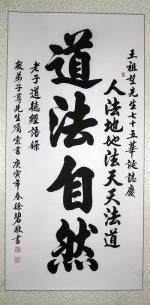 王祖先生七十五華誕誌慶
人法地地法天天法道
道法自然
老子道德經語錄
弟子先生囑書庚寅年春徐碧敬書